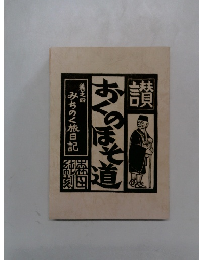 讃
おくのほそ道
巻之四
みちのく旅日記